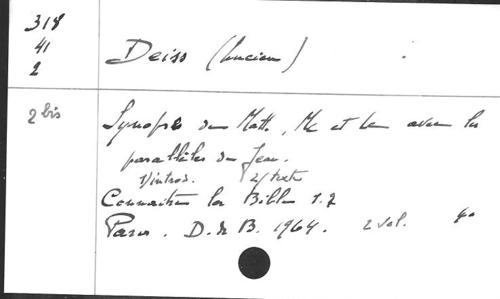 318
41
2
Deiss (Lucien)
2 bis
Synopse de Matt., Mc et Lc avec les
parallèles de Jean.
1/introd. 2/texte
Connaître la Bible 1.2
Paris. D.d.B. 1964. 2 vol. 4°